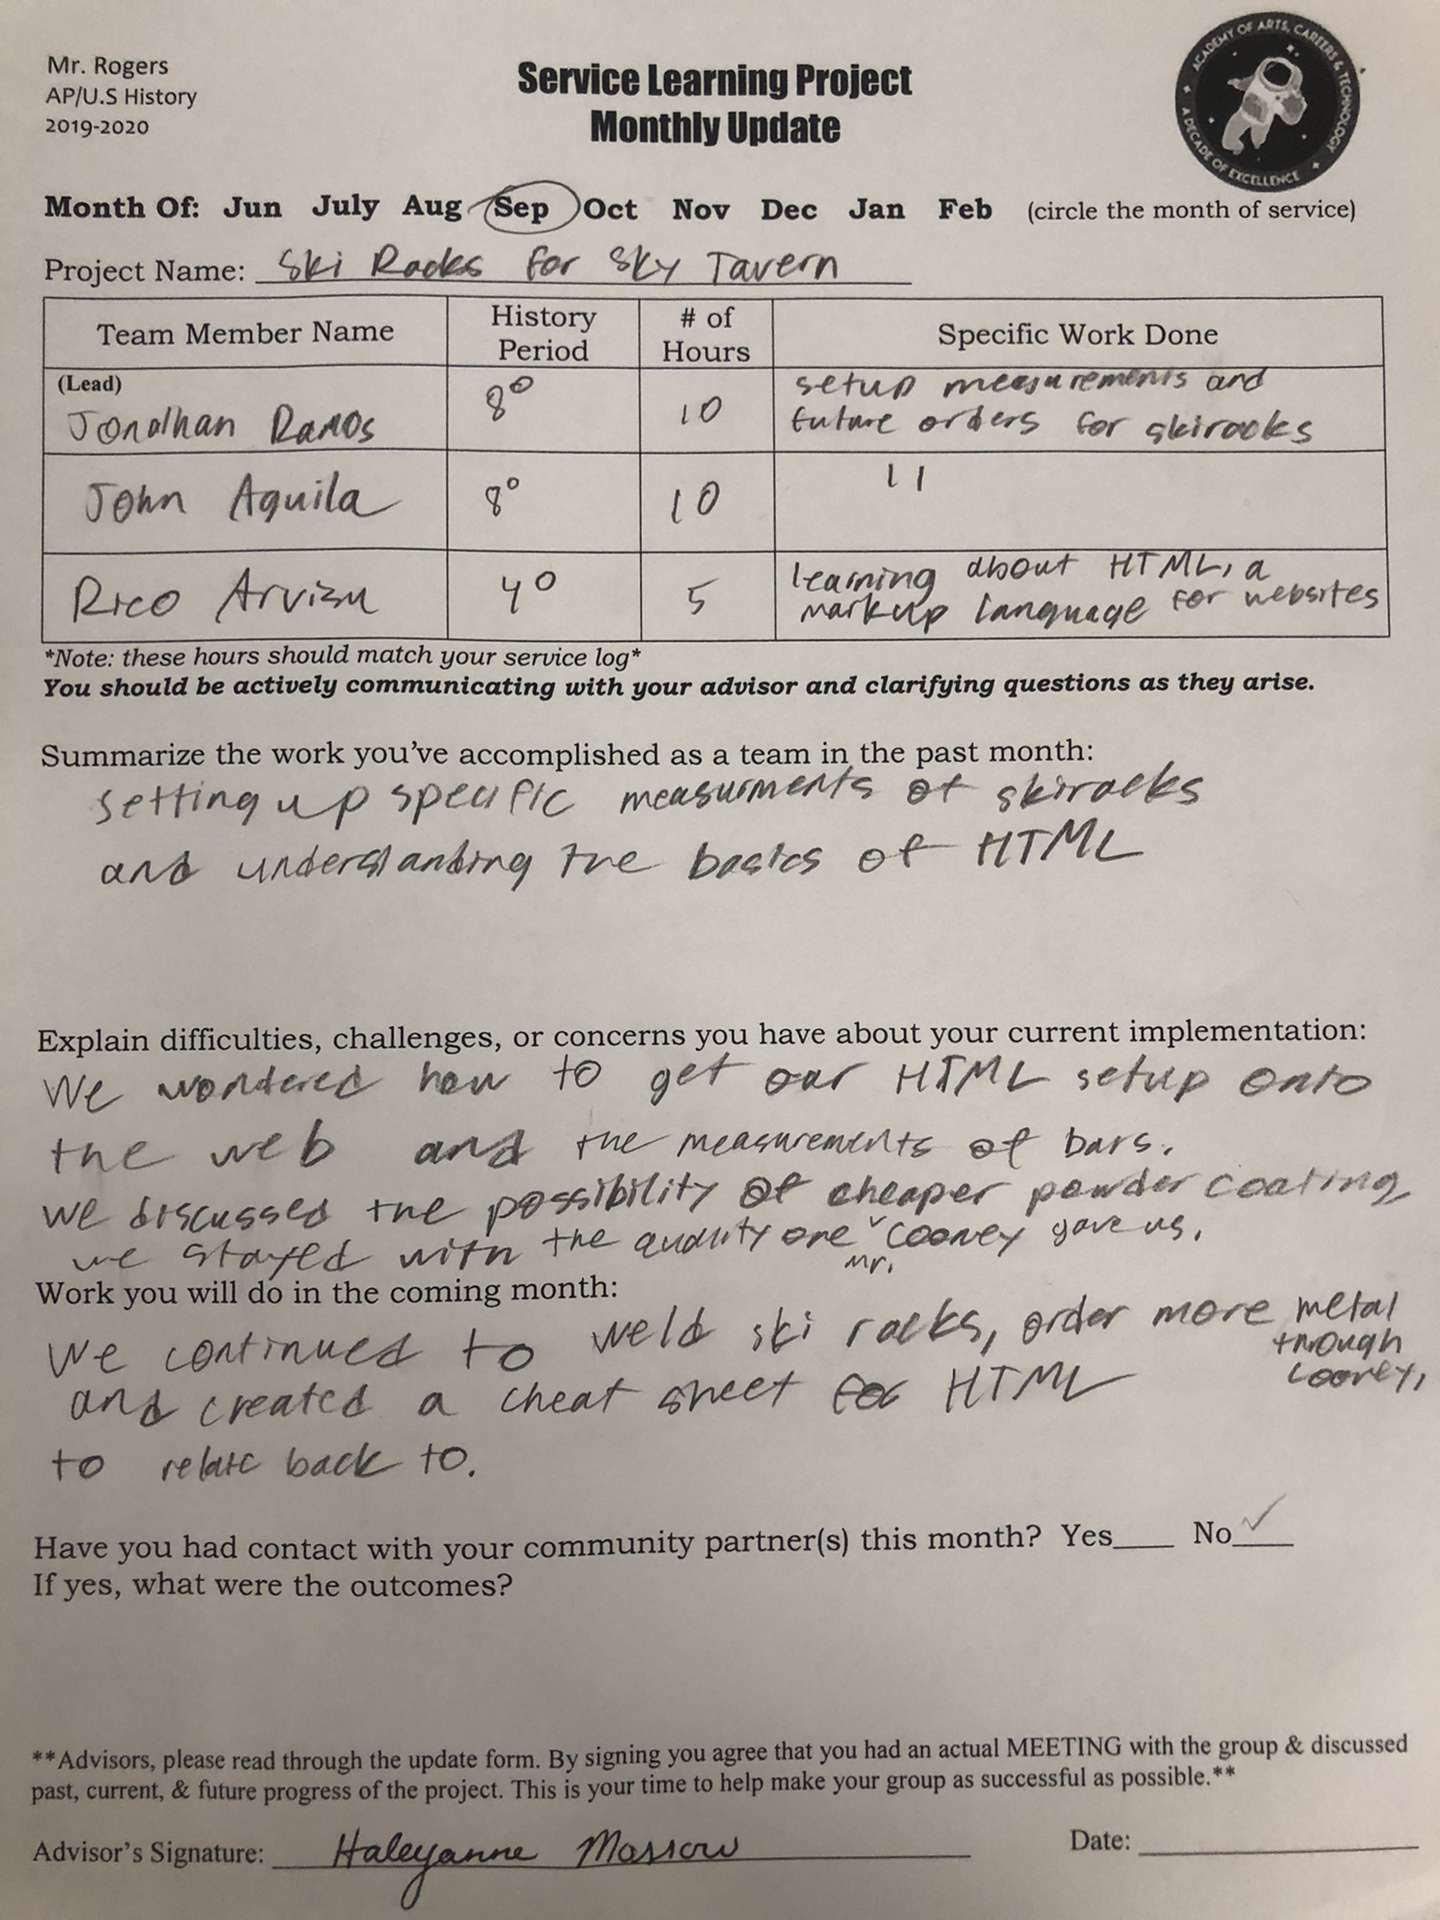 Mr. Rogers
AP/U.S History
2019-2020
Service Learning Project
Monthly Update
ACADEMY OF ARTS, CAREERS & TECHNOLOGY
A DECADE OF EXCELLENCE
Month Of: Jun July Aug Sep Oct Nov Dec Jan Feb (circle the month of service)
Project Name: Ski Racks for Sky Tavern
Team Member Name
History
Period
# of
Hours
Specific Work Done
(Lead)
Jonathan Ramos
8°
10
setup measurements and
future orders for skiracks
John Aguila
8°
10
11
Rico Arvizu
4°
5
learning about HTML, a
markup language for websites
*Note: these hours should match your service log*
You should be actively communicating with your advisor and clarifying questions as they arise.
Summarize the work you've accomplished as a team in the past month:
setting up specific measurments of skiracks
and understanding the basics of HTML
Explain difficulties, challenges, or concerns you have about your current implementation:
We wondered how to get our HTML setup onto
the web and the measurements of bars.
we discussed the possibility of cheaper powder coating
we stayed with the quality one Mr. Cooney gave us.
Work you will do in the coming month:
We continued to weld ski racks, order more metal
through
Cooney,
and created a cheat sheet for HTML
to relate back to.
Have you had contact with your community partner(s) this month? Yes____ No✓____
If yes, what were the outcomes?
**Advisors, please read through the update form. By signing you agree that you had an actual MEETING with the group & discussed
past, current, & future progress of the project. This is your time to help make your group as successful as possible.**
Advisor's Signature: Haleyanne Morrow Date: